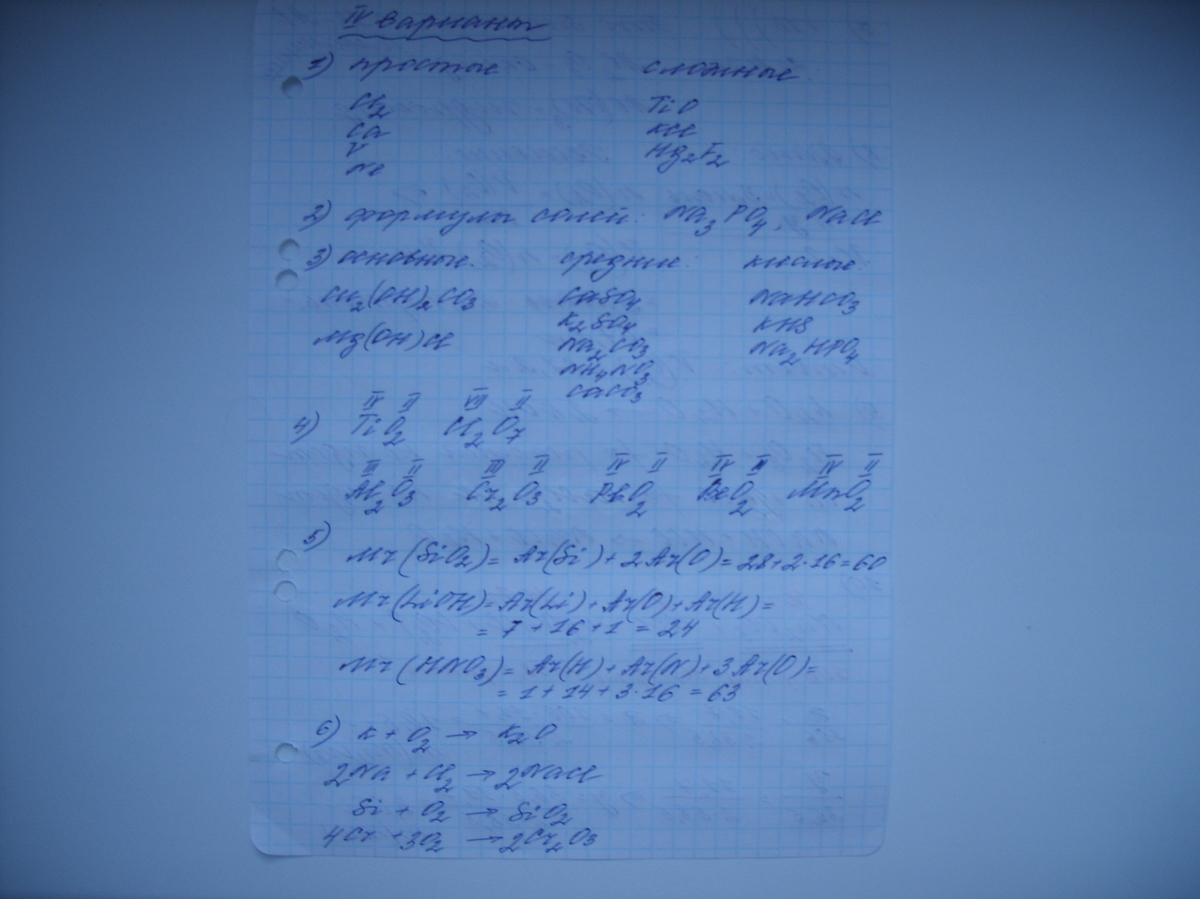 IV вариант
1) простые сложные:
Cl2 TiO
Ca KCl
V Hg2F2
Ne
2) формулы солей: Na3PO4, NaCl
3) основные: средние: кислые:
Cu2(OH)2CO3 CaSO4 NaHCO3
K2SO4 KHS
Mg(OH)Cl Na2CO3 Na2HPO4
NH4NO3
CaCO3
IV II VII II
4) TiO2 Cl2O7
III II III II IV II IV II IV II
Al2O3 Cr2O3 PbO2 BeO2 MnO2
5)
Mr(SiO2) = Ar(Si) + 2Ar(O) = 28+2·16=60
Mr(LiOH) = Ar(Li) + Ar(O) + Ar(H) =
= 7 + 16 + 1 = 24
Mr(HNO3) = Ar(H) + Ar(N) + 3Ar(O) =
= 1 + 14 + 3·16 = 63
6) K + O2 → K2O
2Na + Cl2 → 2NaCl
Si + O2 → SiO2
4Cr + 3O2 → 2Cr2O3